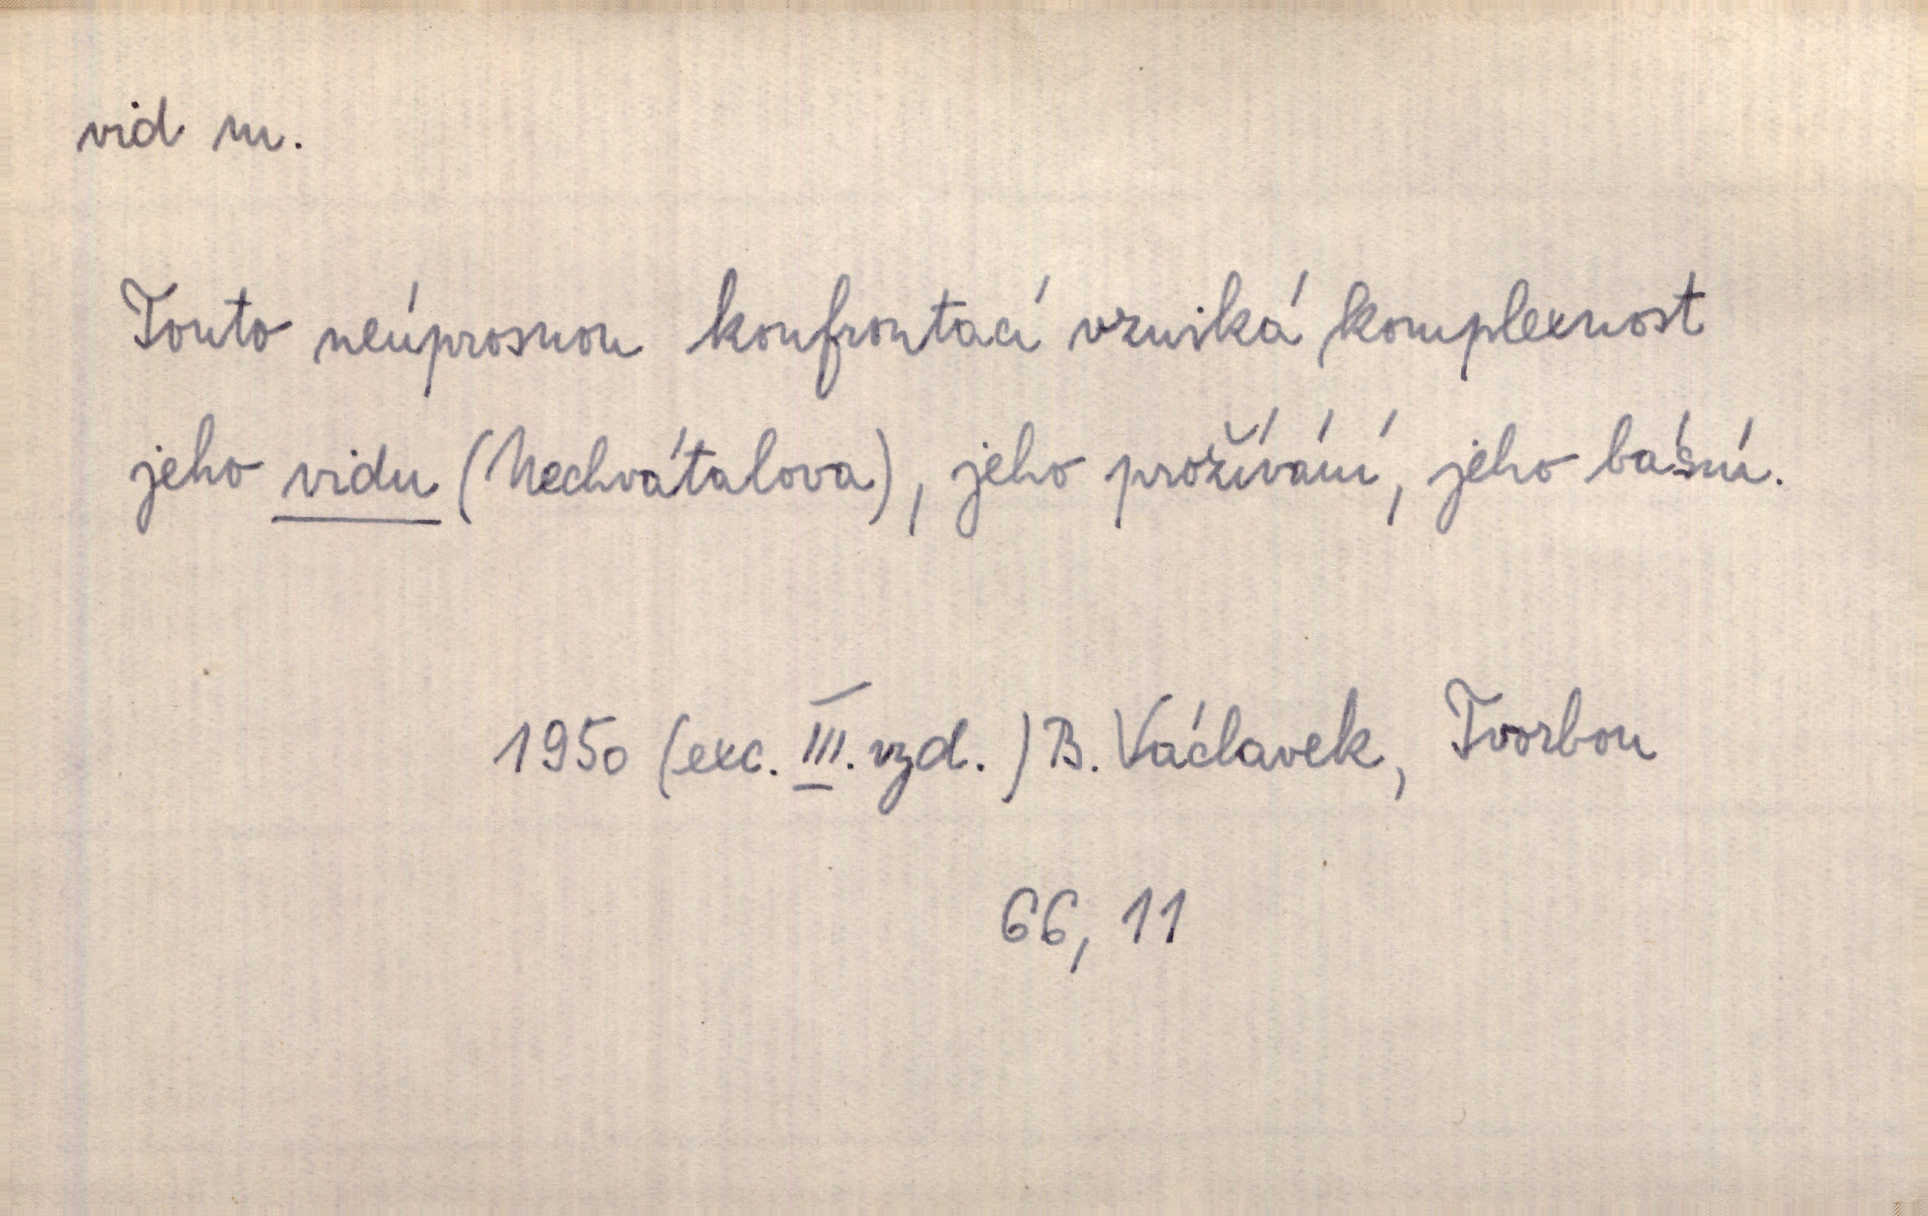 vid m.
Touto neúprosnou konfrontací vzniká komplexnost
jeho vidu (Nechvátalova), jeho prožívání, jeho básní.
1950 (exc. III. vyd.) B. Václavek, Tvorbou
66, 11